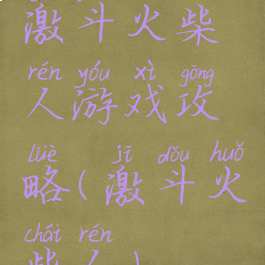 激斗火柴
rén yóu xì gōng
人游戏攻
lüè jī dǒu huǒ
略(激斗火
chái rén
柴人)